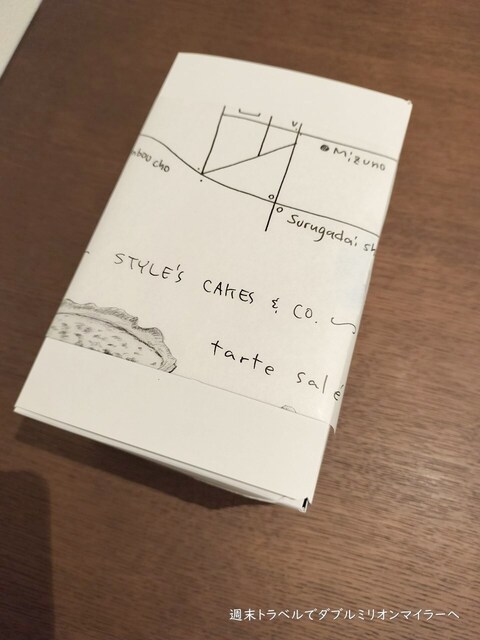 v
Mizuno
bou cho
Surugadai sh
STYLE'S CAKES & CO.
tarte salé
週末トラベルでダブルミリオンマイラーへ